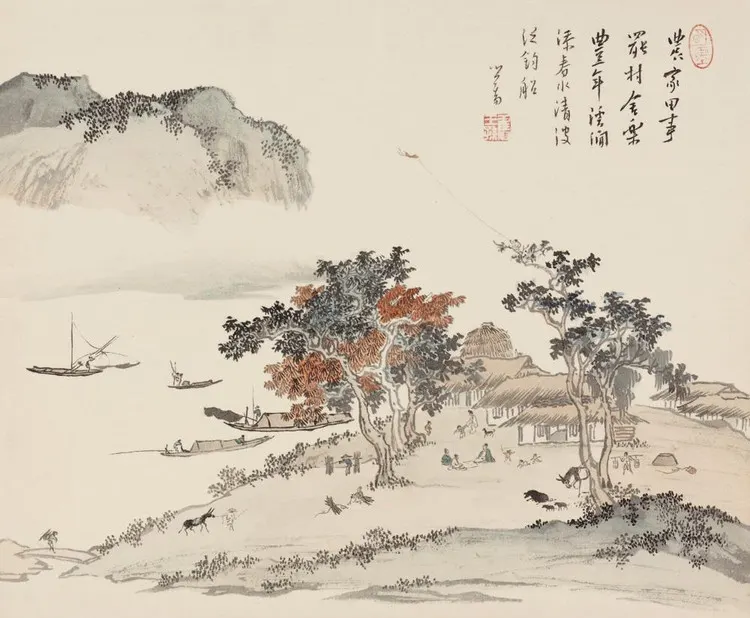 農家田事
罷村舍樂
豐年溪澗
深春水清波
泛釣船
心畬